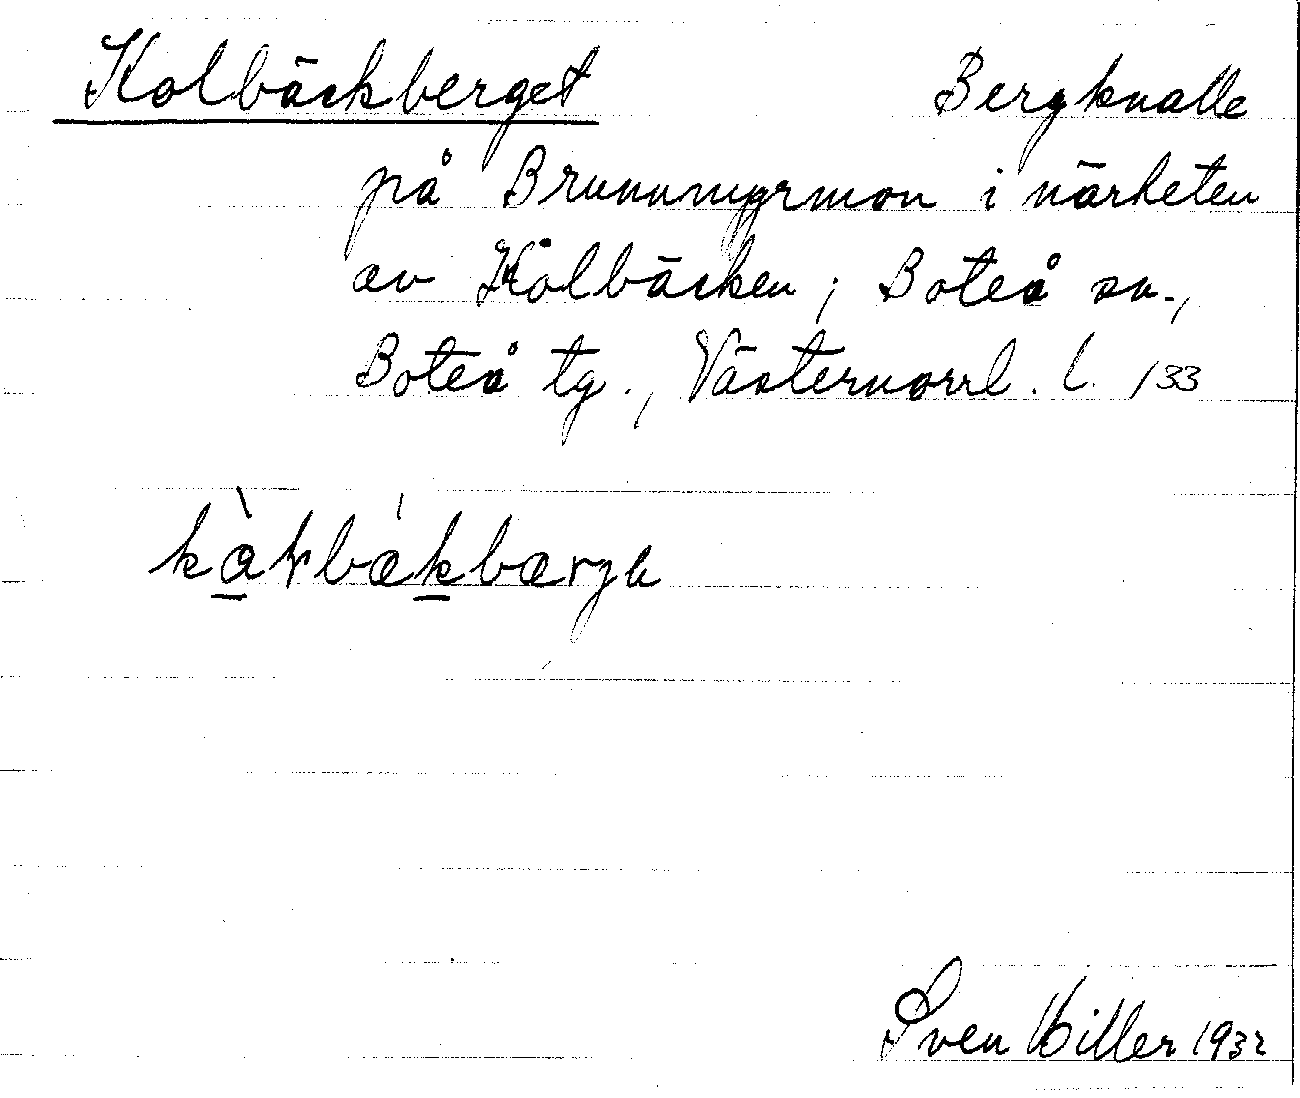 Kolbäckberget Bergknalle
på Brunnmyrmon i närheten
av Kolbäcken; Boteå sn.,
Boteå tg., Västernorrl. l. 133
Sven Hiller 1932